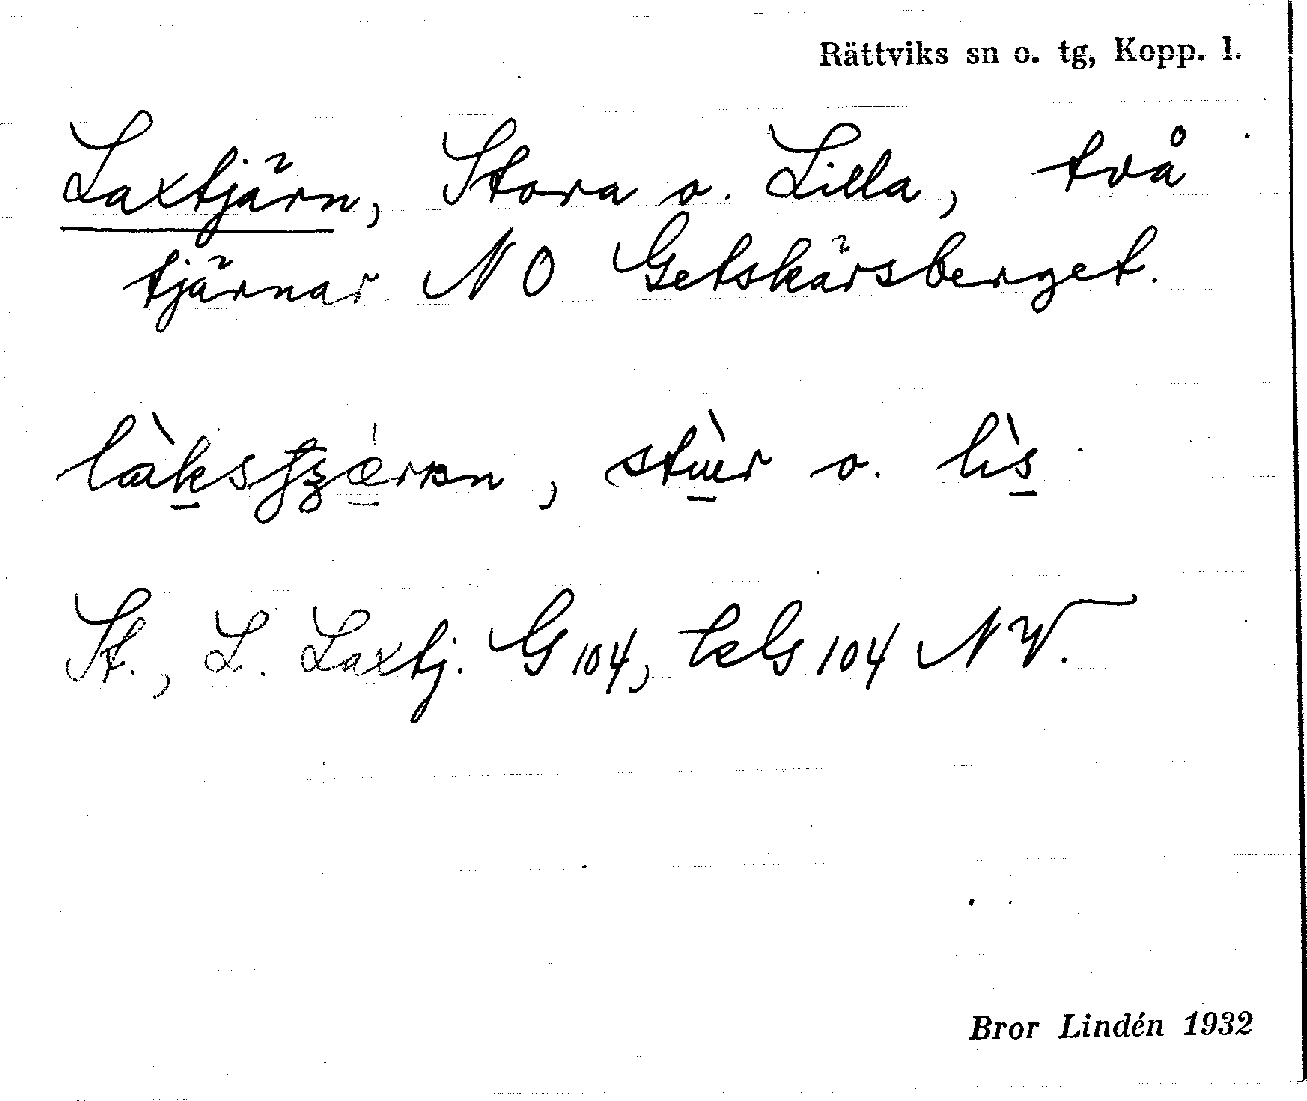 Rättviks sn o. tg, Kopp. l.
Laxtjärn, Stora o. Lilla, två
tjärnar N O Getskärsberget.
stùr o. lìs
St., L. Laxtj. G 104, G 104 N V.
Bror Lindén 1932